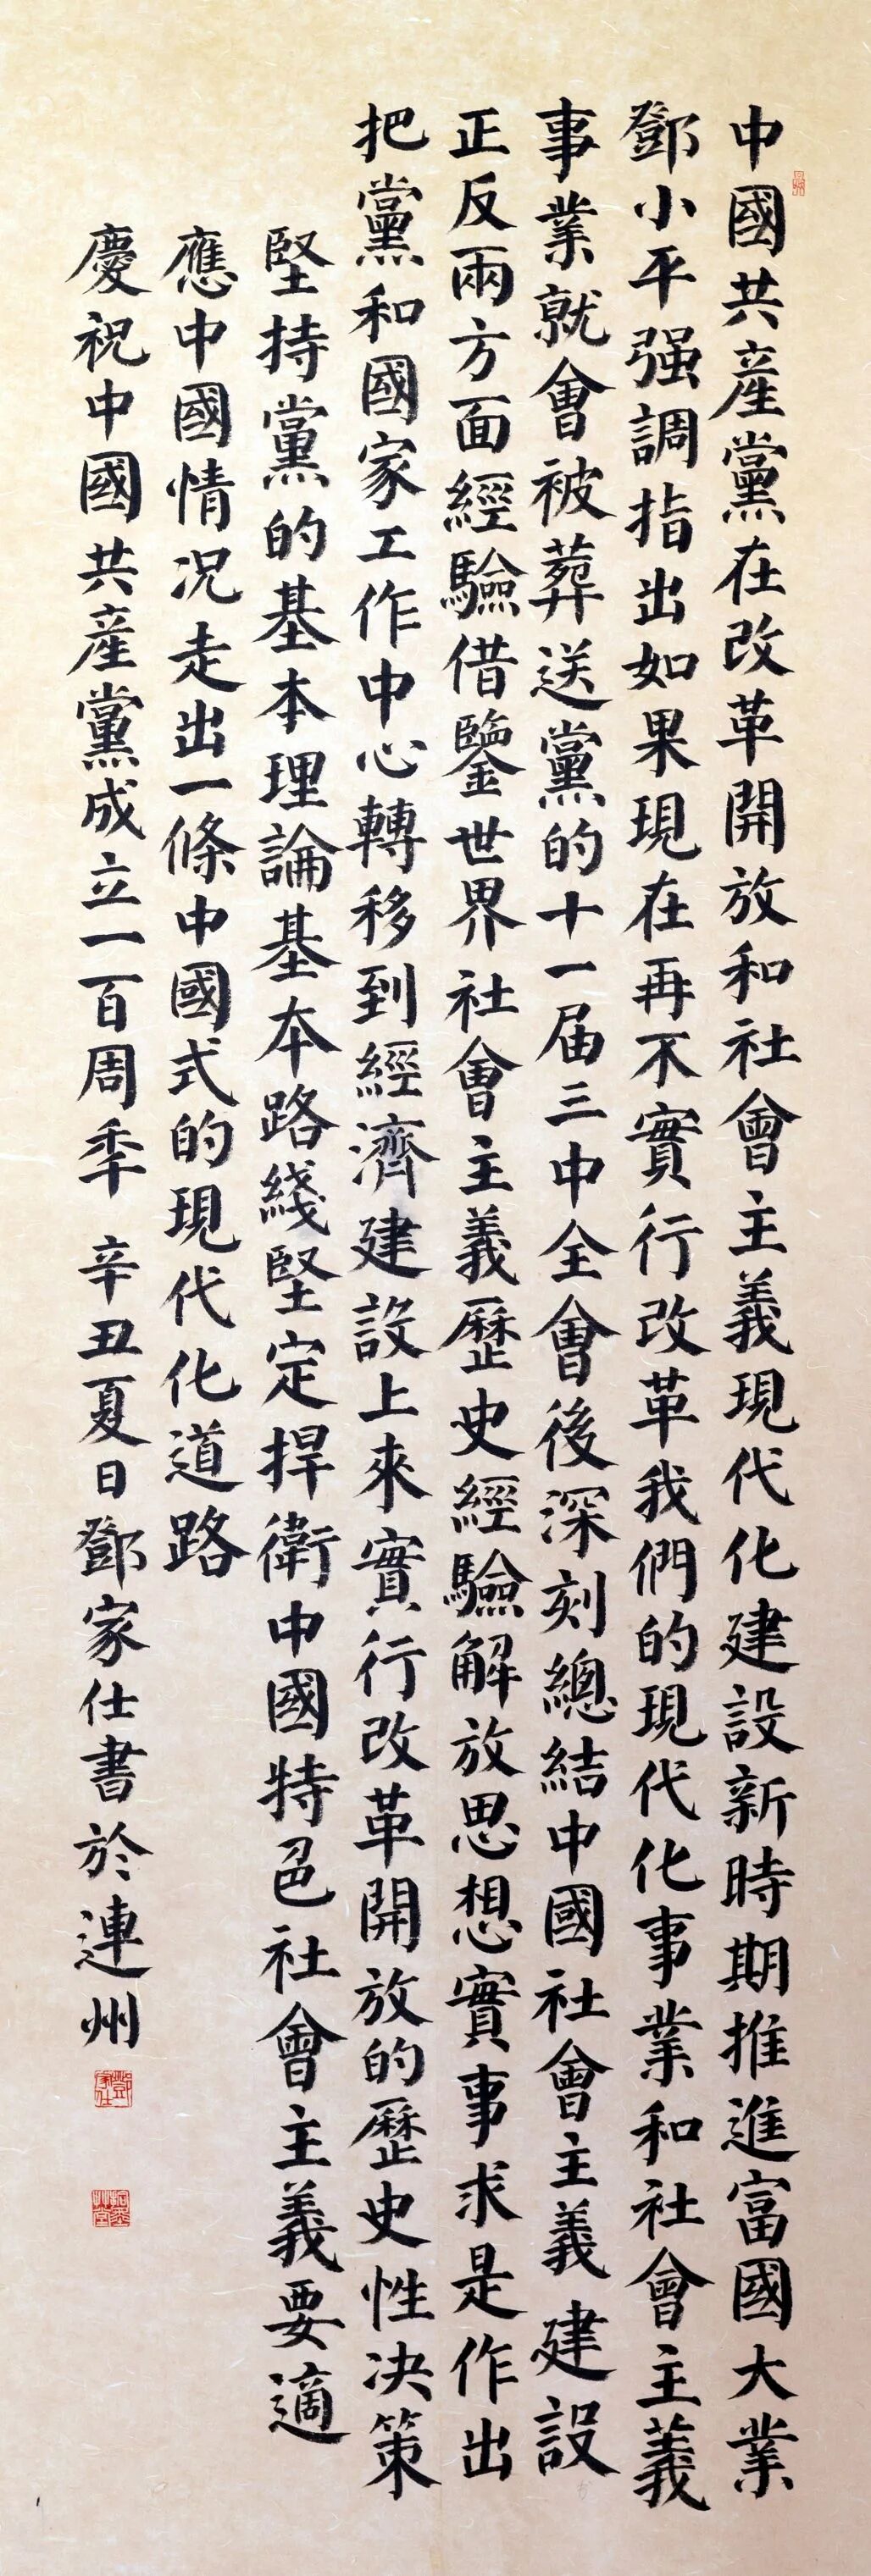 中國共產黨在改革開放和社會主義現代化建設新時期推進富國大業
鄧小平强調指出如果現在再不實行改革我們的現代化事業和社會主義
事業就會被葬送黨的十一届三中全會後深刻總結中國社會主義建設
正反兩方面經驗借鑒世界社會主義歷史經驗解放思想實事求是作出
把黨和國家工作中心轉移到經濟建設上來實行改革開放的歷史性決策
堅持黨的基本理論基本路綫堅定捍衛中國特色社會主義要適
應中國情况走出一條中國式的現代化道路
慶祝中國共產黨成立一百周年 辛丑夏日鄧家仕書於連州
鄧家仕